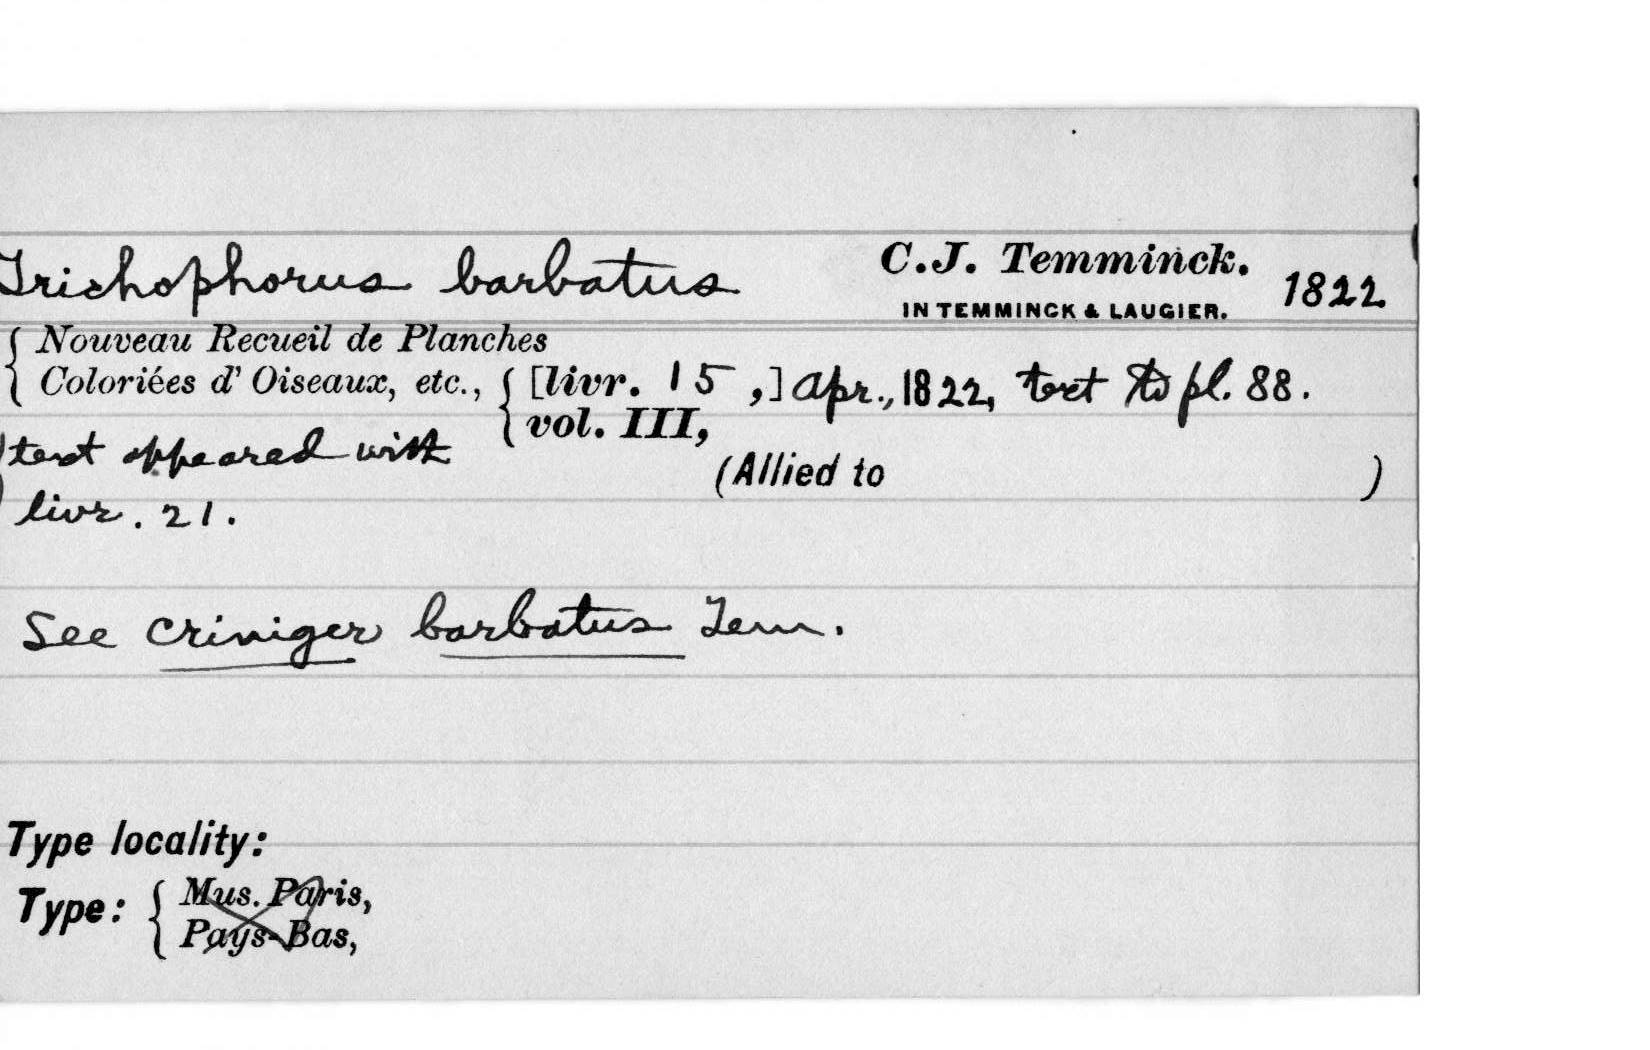 Trichophorus barbatus C.J. Temminck. 1822
IN TEMMINCK & LAUGIER.
Nouveau Recueil de Planches
Coloriées d' Oiseaux, etc., [livr. 15 ,] Apr., 1822, text to pl. 88.
vol. III,
text appeared with
(Allied to )
livr. 21.
See Criniger barbatus Tem.
Type locality:
Type: Mus. Paris,
Pays-Bas,